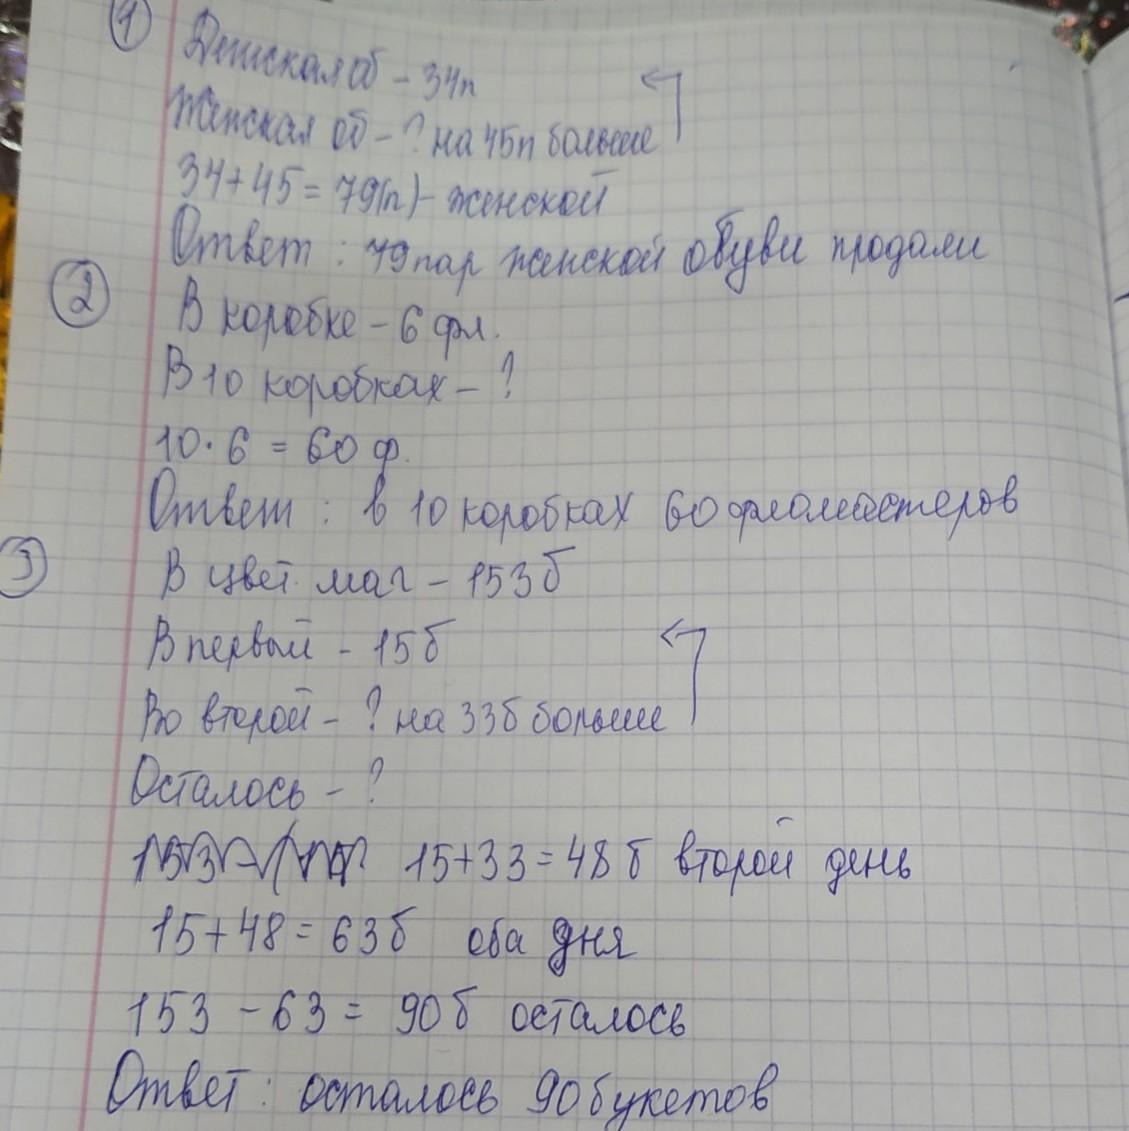 1
Детская об - 34п
Женская об - ? на 45п больше
34+45=79(п)- женской
Ответ : 79пар женской обуви продали
2
В коробке - 6 фл.
В 10 коробках - ?
10·6 = 60 ф.
Ответ : в 10 коробках 60 фломастеров
3
В цвет. маг - 153б
В первый - 15б
Во второй - ? на 33б больше
Осталось - ?
15+33=48б второй день
15+48=63б оба дня
153-63= 90б осталось
Ответ : осталось 90 букетов